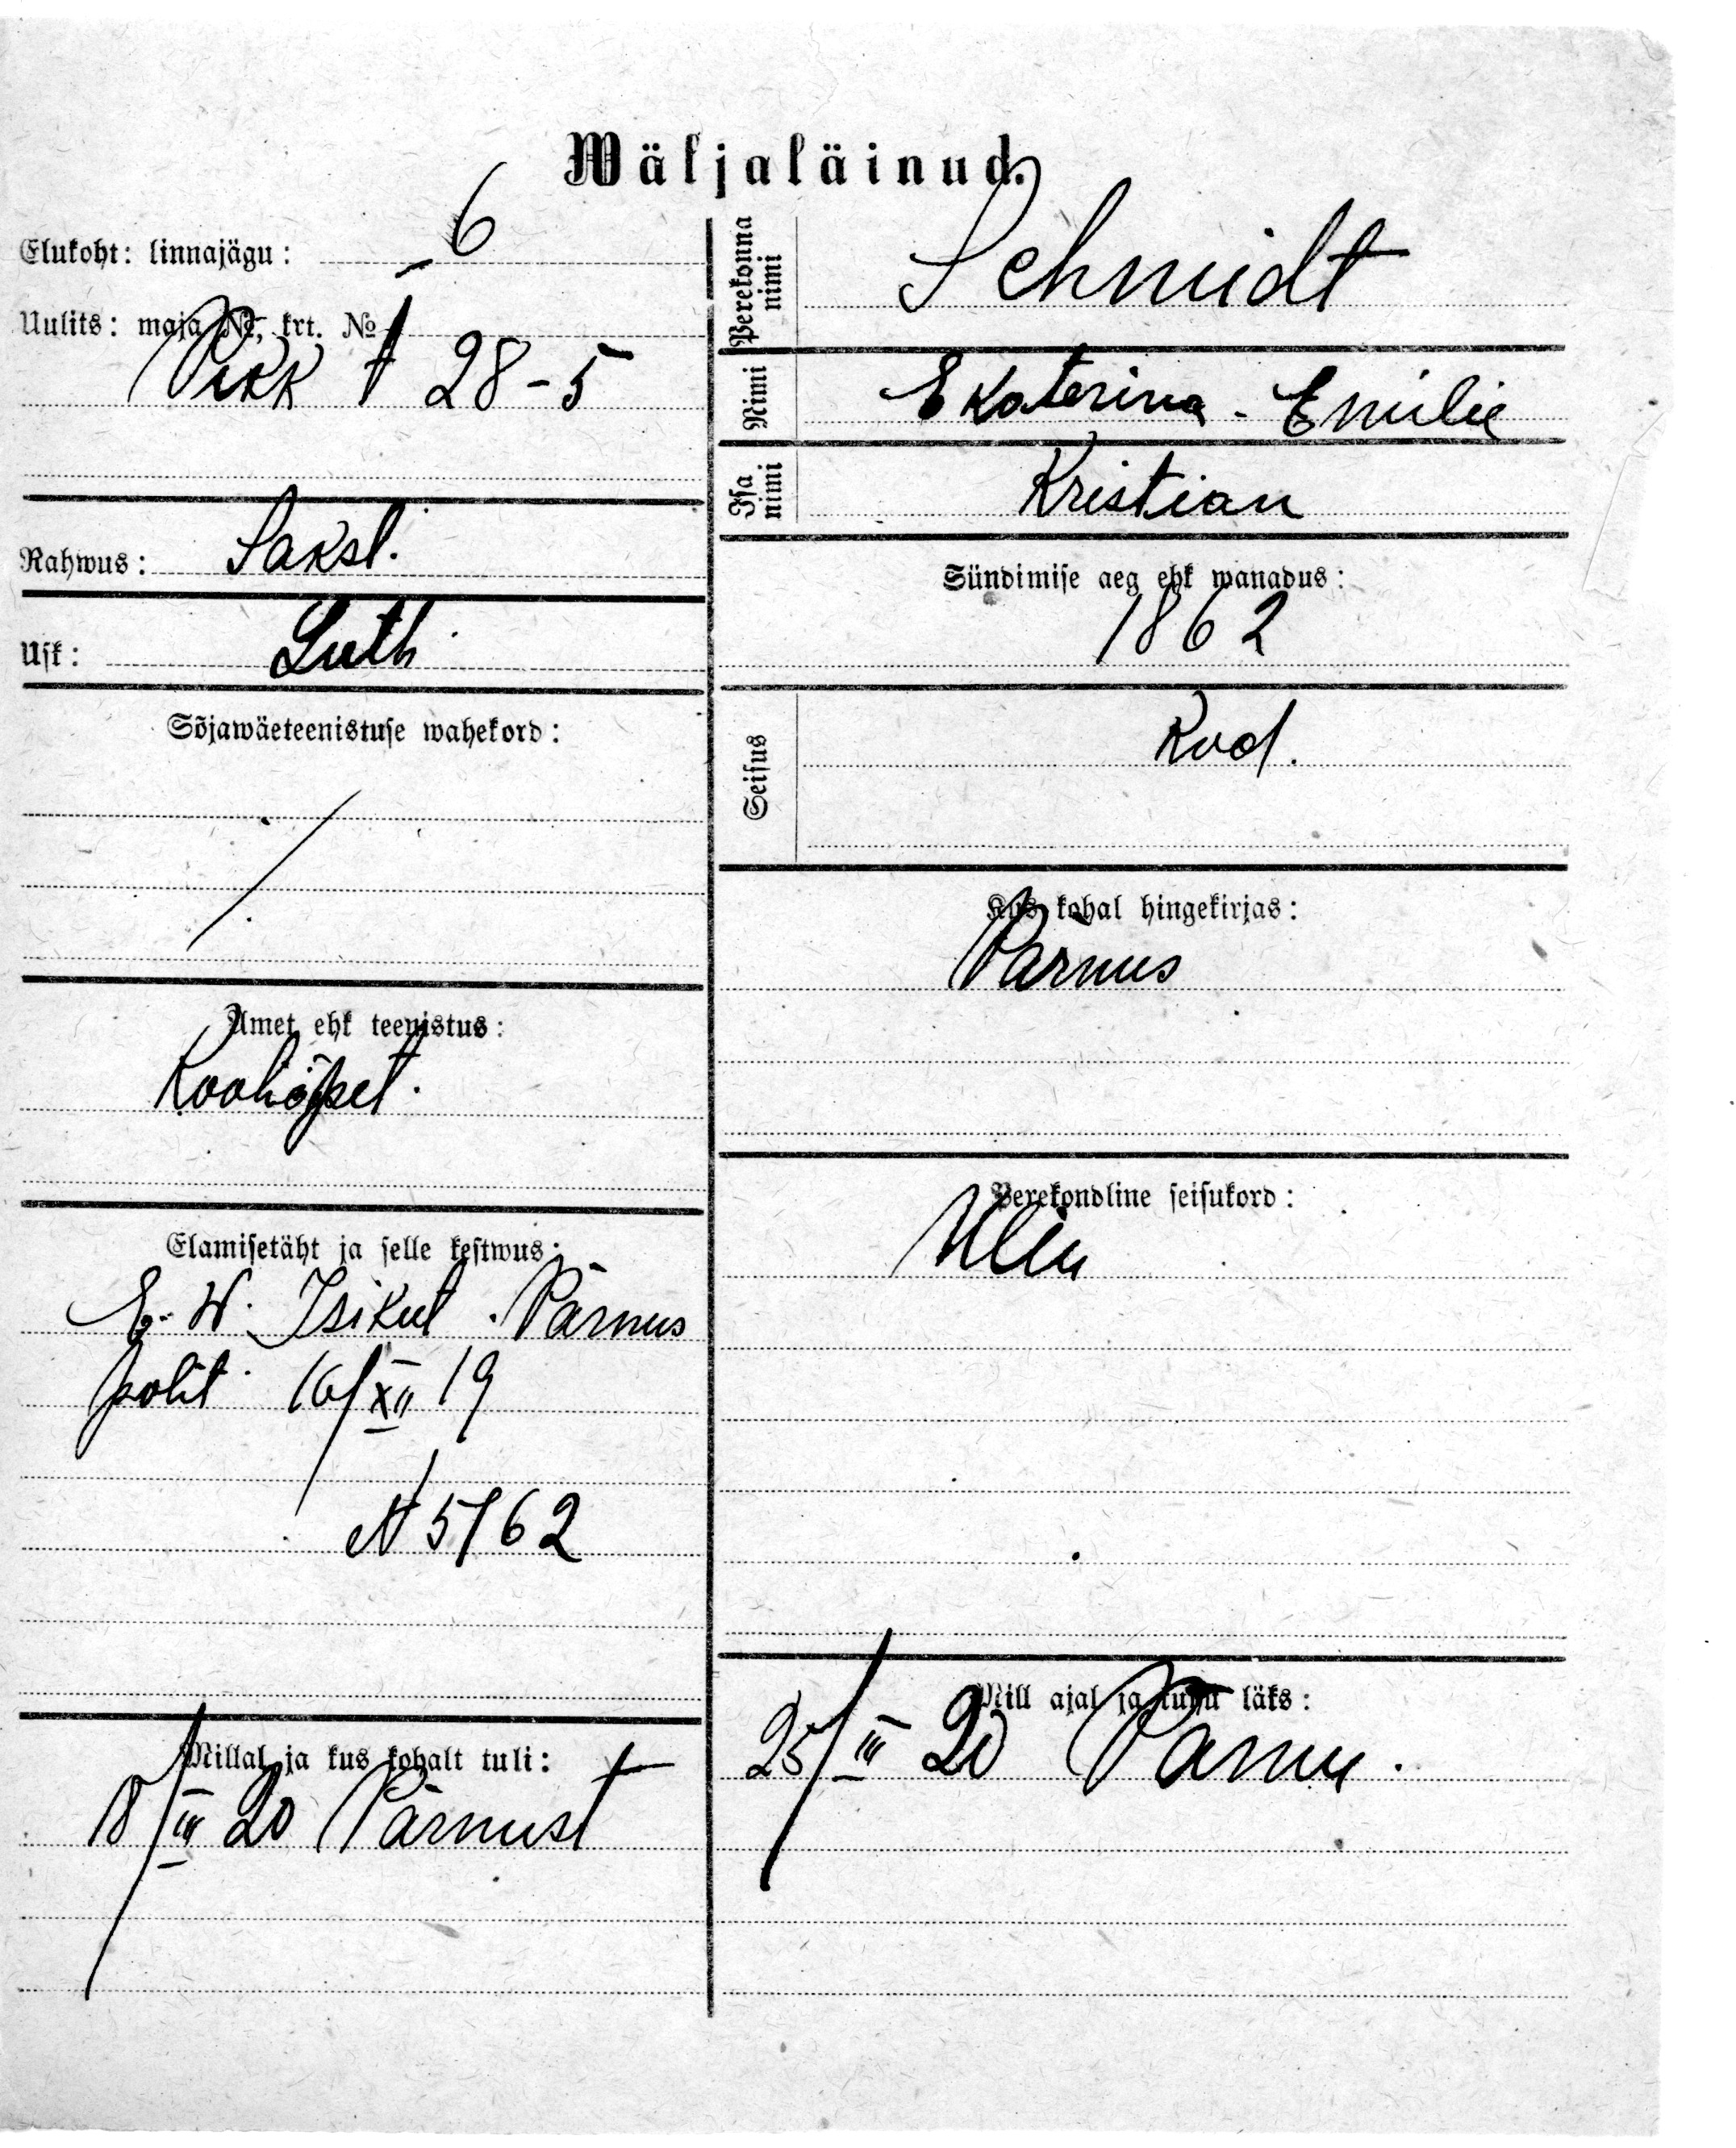 Wäljaläinud.
Elukoht: linnajägu: 6
Uulits: maja №, krt. №
Pikk t 28-5
Rahwus: Saksl.
Usk: Luth.
Sõjawäeteenistuse wahekord:
/
Amet ehk teenistus:
Koolõpet.
Elamisetäht ja selle kestwus:
E. W. Isikut. Pärnus
polit. 16/XII 19
N 5762
Millal ja kus kohalt tuli:
18/III 20 Pärnust
Perekonna nimi
Schmidt
Nimi
Ekaterina - Emilie
Isa nimi
Kristian
Sündimise aeg ehk wanadus:
1862
Seisus
Kod.
Kus kohal hingekirjas:
Pärnus
Perekondline seisukord:
Mill ajal ja kuhu läks:
25/III 20 Pärnu.